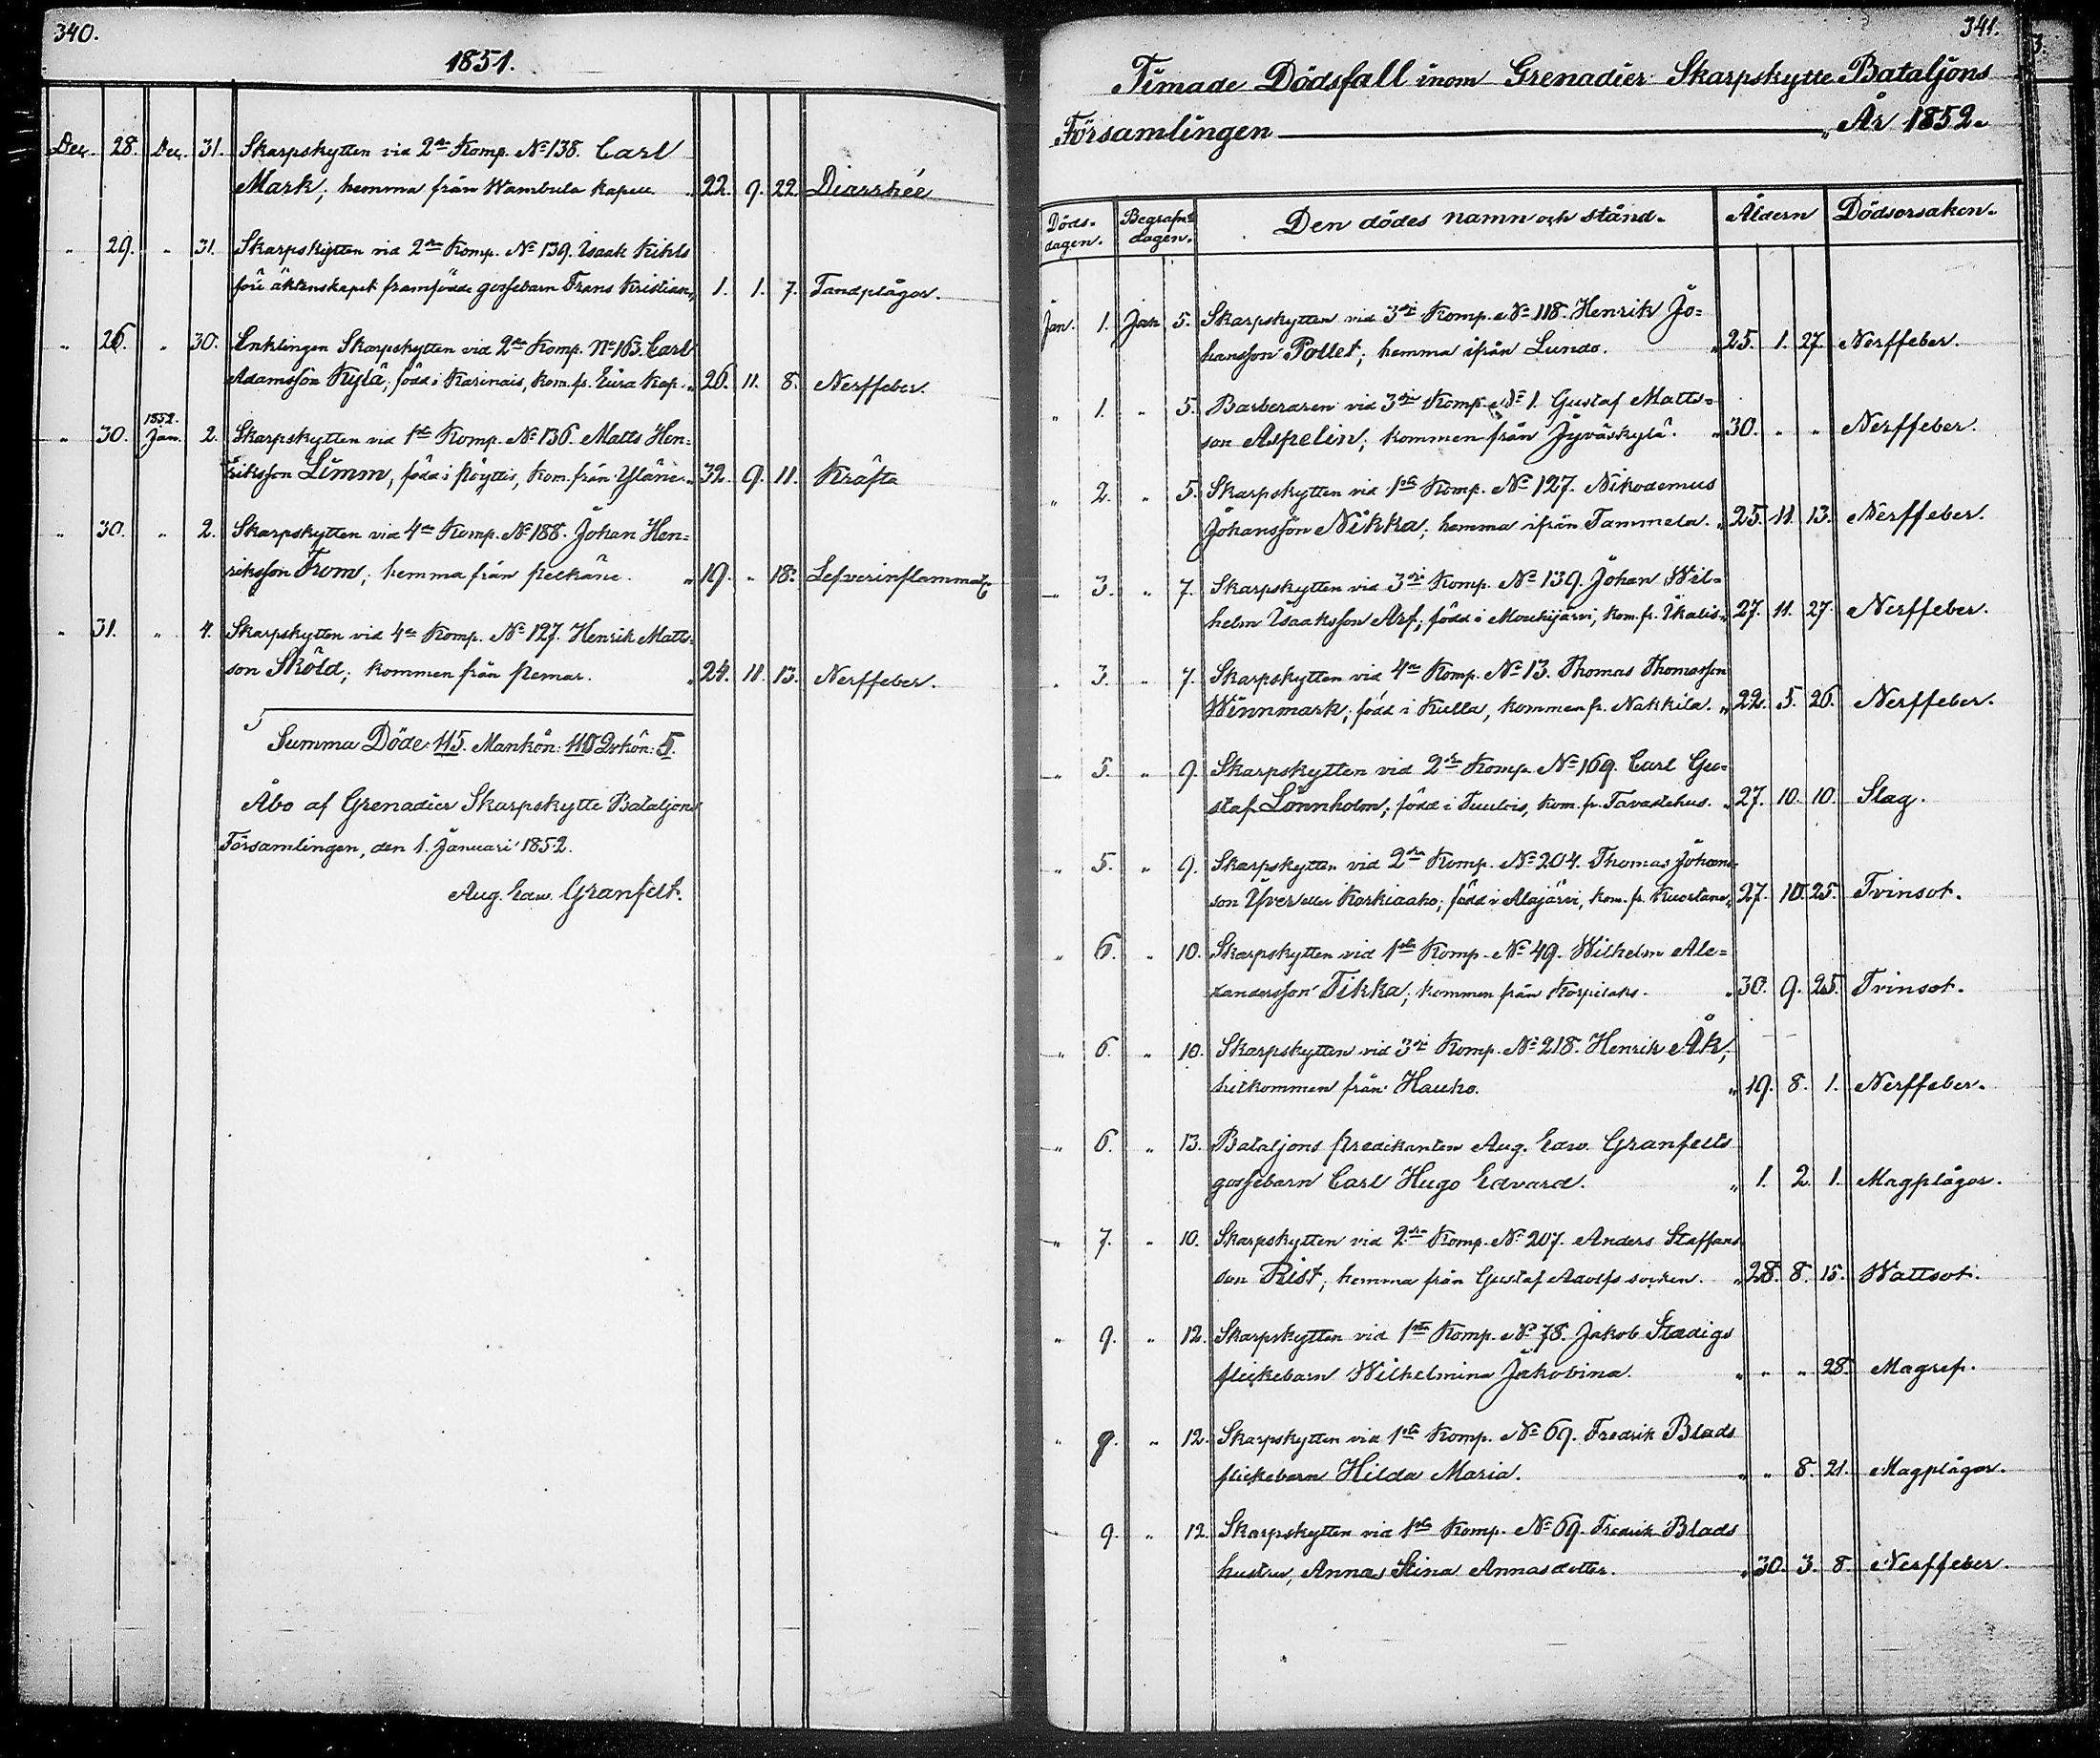 340.
1851.
Dec. 28. Dec. 31. Skarpskytten vid 2dra Komp. No 138. Carl
Mark; hemma från Wambula kapell „ 22. 9. 22. Diarrhée
„ 29. „ 31. Skarpskytten vid 2dra Komp. No 139. Isaak Kihls
före äktenskapet framfödde gossebarn Frans Kristian „ 1. 1. 7. Tandplågor.
„ 26. „ 30. Enklingen Skarpskytten vid 2dra Komp. No 163. Carl
Adamsson Kylä; född i Karinais, kom. fr. Eura kap. „ 26. 11. 8. Nerffeber.
„ 30. 1852. Jan. 2. Skarpskytten vid 1sta Komp. No 136. Matts Hen=
riksson Limm, född i Pöyttis, kom. från Yläne. „ 32. 9. 11. Kräfta
„ 30. „ 2. Skarpskytten vid 4de Komp. No 188. Johan Hen=
riksson From; hemma från Pelkäne. „ 19. „ 18. Lefverinflammat
„ 31. „ 4. Skarpskytten vid 4de Komp. No 127. Henrik Matts=
son Sköld; kommen från Pemar. „ 24. 11. 13. Nerffeber.
Summa Döde: 115. Mankön: 110 Qvkön: 5.
Åbo af Grenadier Skarpskytte Bataljons
Församlingen, den 1. Januari 1852.
Aug. Edw. Granfelt.
341.
Timade Dödsfall inom Grenadier Skarpskytte Bataljons
Församlingen „ År 1852.
Döds-dagen. Begrafns dagen. Den dödes namn och stånd. Åldern Dödsorsaken.
Jan. 1. Jan 5. Skarpskytten vid 3dje Komp. No 118. Henrik Jo=
hansson Pollet; hemma ifrån Lundo. „ 25. 1. 27. Nerffeber.
„ 1. „ 5. Barberaren vid 3dje Komp. No 1. Gustaf Matts=
son Aspelin; kommen från Jyväskylä. „ 30. „ „ Nerffeber.
„ 2. „ 5. Skarpskytten vid 1sta Komp. No 127. Nikodemus
Johansson Nikka; hemma ifrån Tammela. „ 25. 11. 13. Nerffeber.
„ 3. „ 7. Skarpskytten vid 3dje Komp. No 139. Johan Wil=
helm Isaaksson Arf; född i Mouhijärvi, kom. fr. Ikalis „ 27. 11. 27. Nerffeber.
„ 3. „ 7. Skarpskytten vid 4de Komp. No 13. Thomas Thomasson
Winnmark; född i Kulla, kommen fr. Nakkila. „ 22. 5. 26. Nerffeber.
„ 5. „ 9. Skarpskytten vid 2dra Komp. No 169. Carl Gu=
staf Lönnholm; född i Tuulois, kom. fr. Tavastehus. „ 27. 10. 10. Slag.
„ 5. „ 9. Skarpskytten vid 2dra Komp. No 204. Thomas Johans=
son Yfver eller Korkiaaho; född i Alajärvi, kom. fr. Kuortane „ 27. 10. 25. Tvinsot.
„ 6. „ 10. Skarpskytten vid 1sta Komp. No 49. Wilhelm Ale=
xandersson Tikka; kommen från Korpilaks. „ 30. 9. 25. Tvinsot.
„ 6. „ 10. Skarpskytten vid 3dje Komp. No 218. Henrik Åk,
hitkommen från Hauho. „ 19. 8. 1. Nerffeber.
„ 6. „ 13. Bataljons Predikanten Aug. Edw. Granfelts
gossebarn Carl Hugo Edvard. „ 1. 2. 1. Magplågor.
„ 7. „ 10. Skarpskytten vid 2dra Komp. No 207. Anders Staffans
son Rist; hemma från Gustaf Adolfs socken. „ 28. 8. 15. Wattsot.
„ 9. „ 12. Skarpskytten vid 1sta Komp. No 78. Jakob Stadigs
flickebarn Wilhelmina Jakobina. „ „ „ 28. Magref.
„ 9. „ 12. Skarpskytten vid 1sta Komp. No 69. Fredrik Blads
flickebarn Hilda Maria. „ „ 8. 21. Magplågor.
9. „ 12. Skarpskytten vid 1sta Komp. No 69. Fredrik Blads
hustru, Anna Stina Annasdotter. „ 30. 3. 8. Nerffeber.